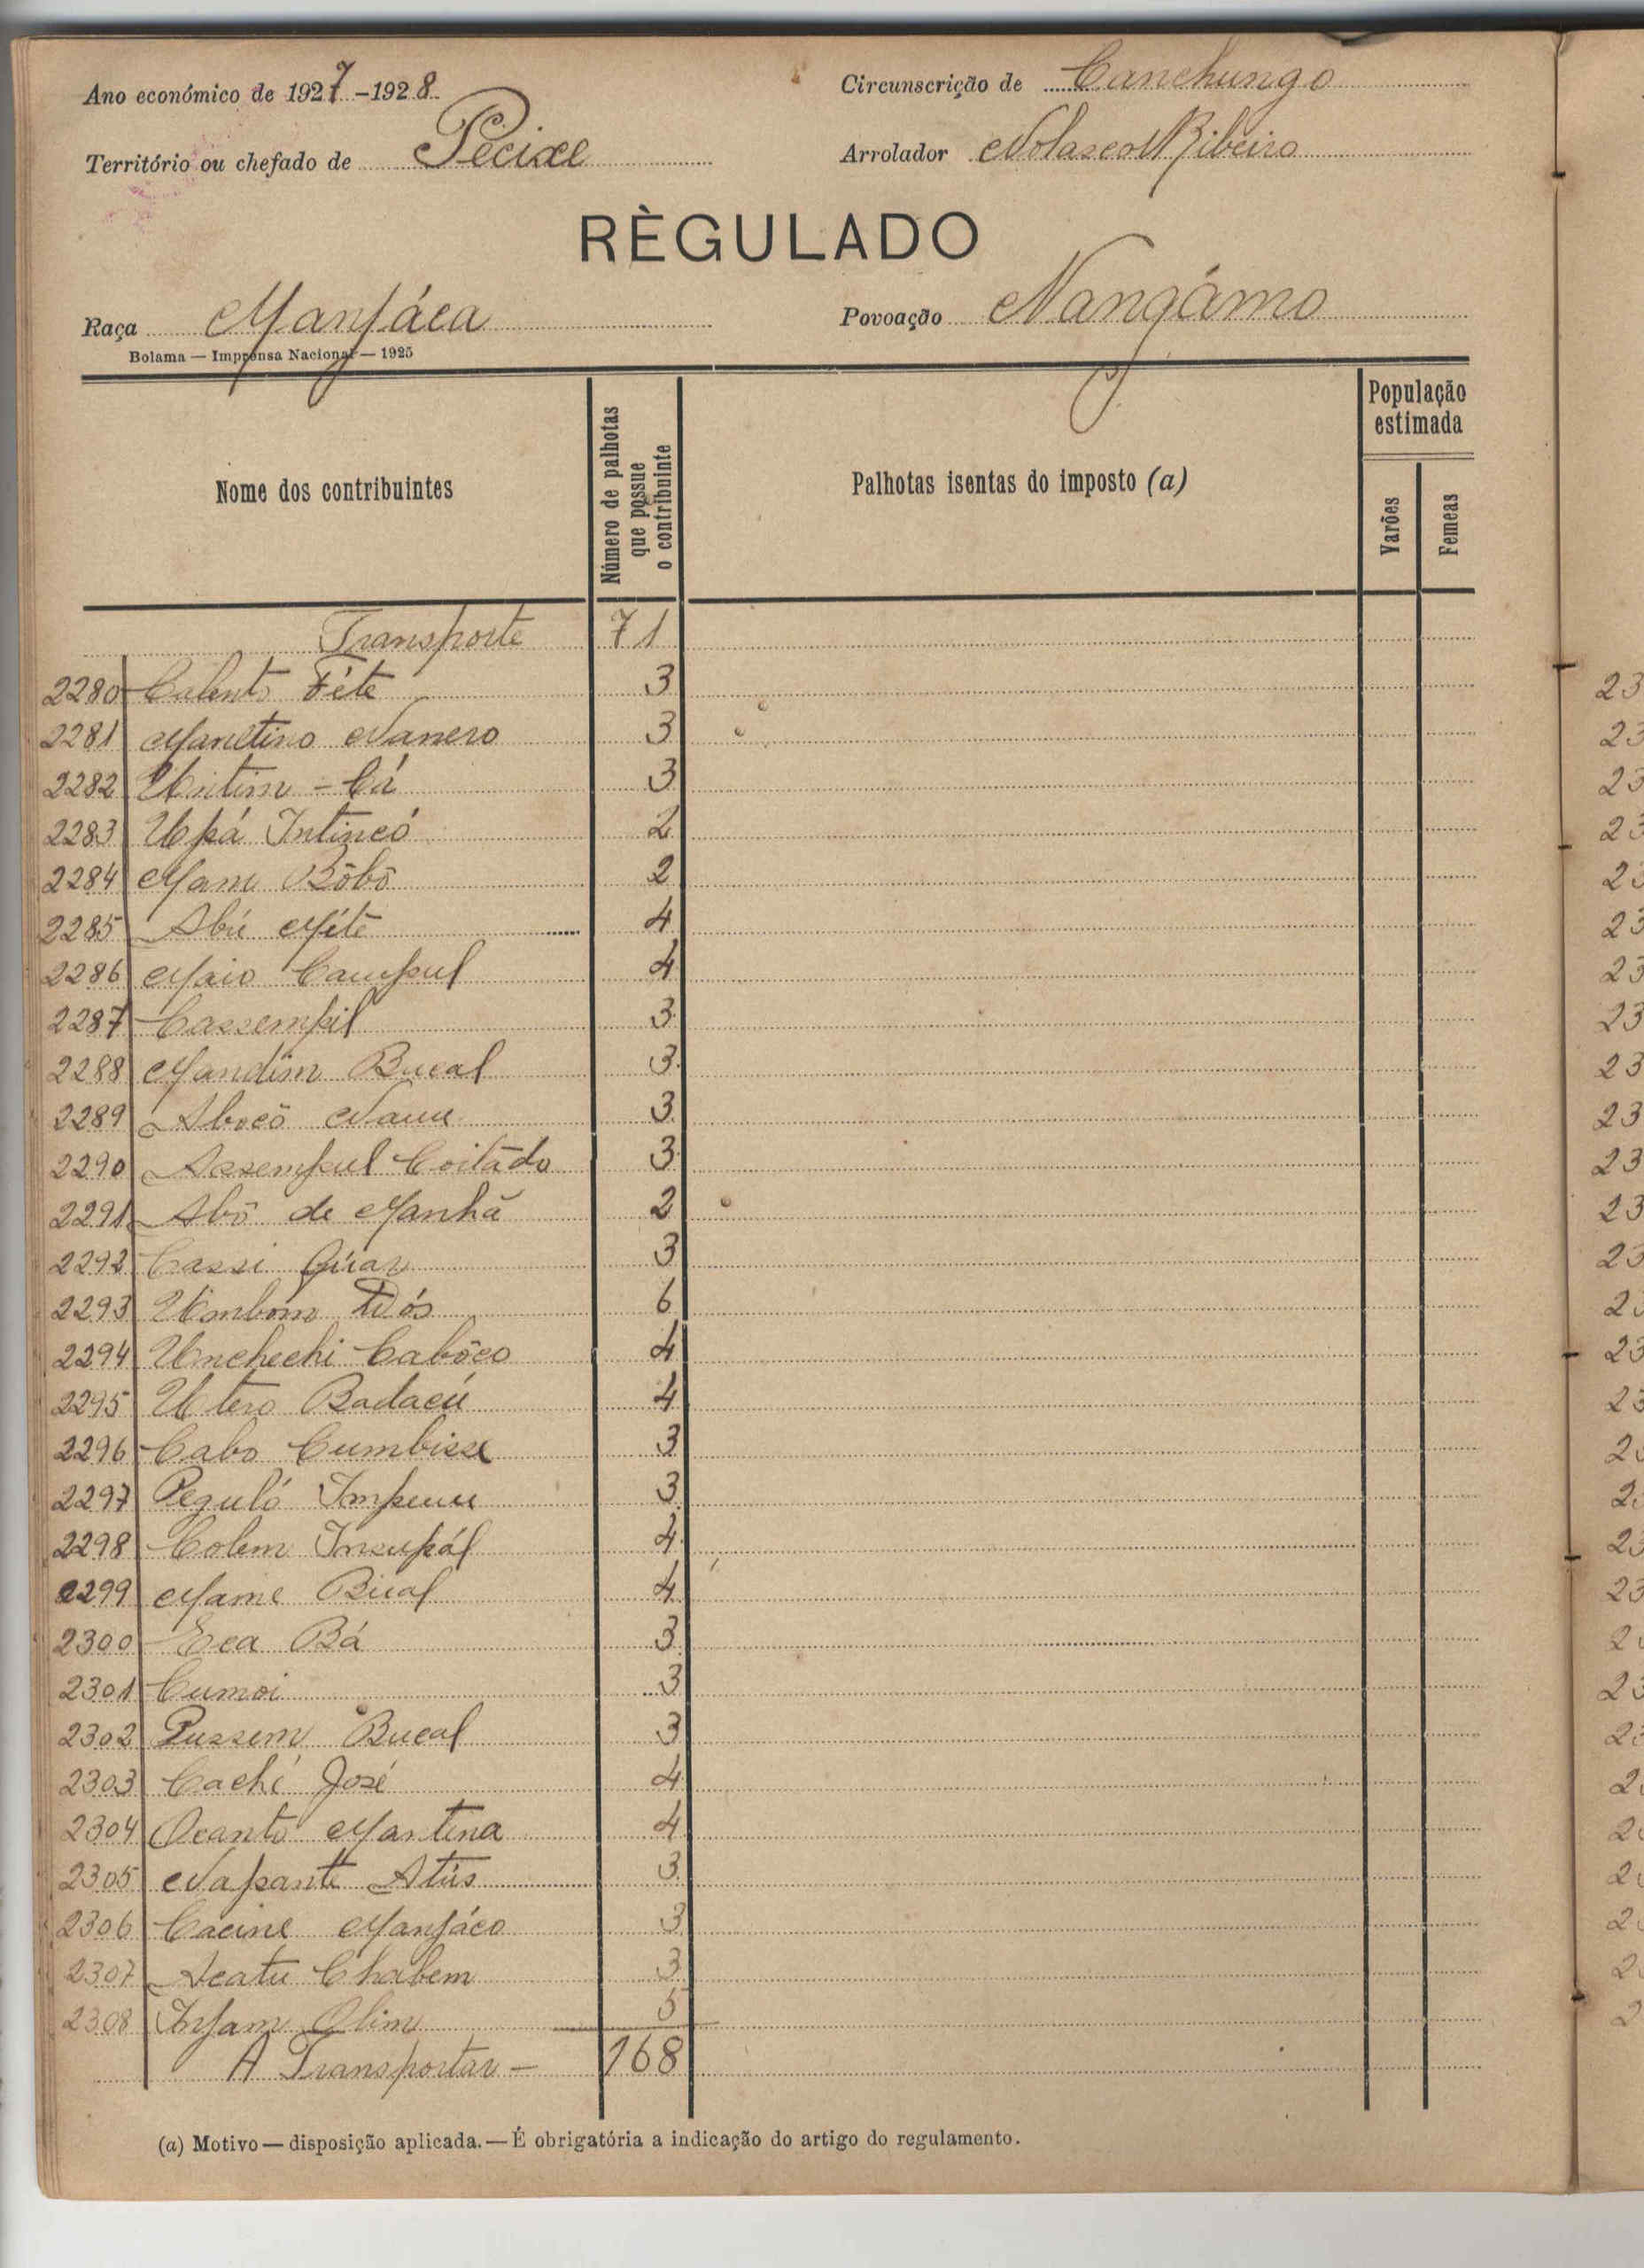 Ano económico de 1927-1928
Circunscrição de Canchungo
Território ou chefado de Pecixe
Arrolador Nolasco Ribeiro
RÈGULADO
Raça Manjáca
Povoação Nangámo
Bolama — Imprensa Nacional — 1925
Nome dos contribuintes
Número de palhotas que possue o contribuinte
Palhotas isentas do imposto (a)
População estimada
Varões
Femeas
Transporte 71
2280 Calento Féte 3
2281 Manetino Nanero 3
2282 Untim - Cá 3
2283 Upá Intincó 2
2284 Mam Bôbô 2
2285 Abú Míte 4
2286 Maio Campul 4
2287 Cassempil 3
2288 Mandim Bucal 3
2289 Abocô Naue 3
2290 Assempul Coitádo 3
2291 Abô de Manhã 2
2292 Cassi 3
2293 Umbom Dós 6
2294 Umchechi Cabôco 4
2295 Utero Badacú 4
2296 Cabo Cumbisse 3
2297 Peguló 3
2298 Colem Insupál 4
2299 Mame Bical 4
2300 Eca Bá 3
2301 Cumoi 3
2302 Pussem Bucal 3
2303 Caché José 4
2304 Ocanto Martina 4
2305 Napante Atús 3
2306 Cacine Manjáco 3
2307 Acatu Chabem 3
2308 Injam Olim 5
A Transportar — 168
(a) Motivo — disposição aplicada. — É obrigatória a indicação do artigo do regulamento.